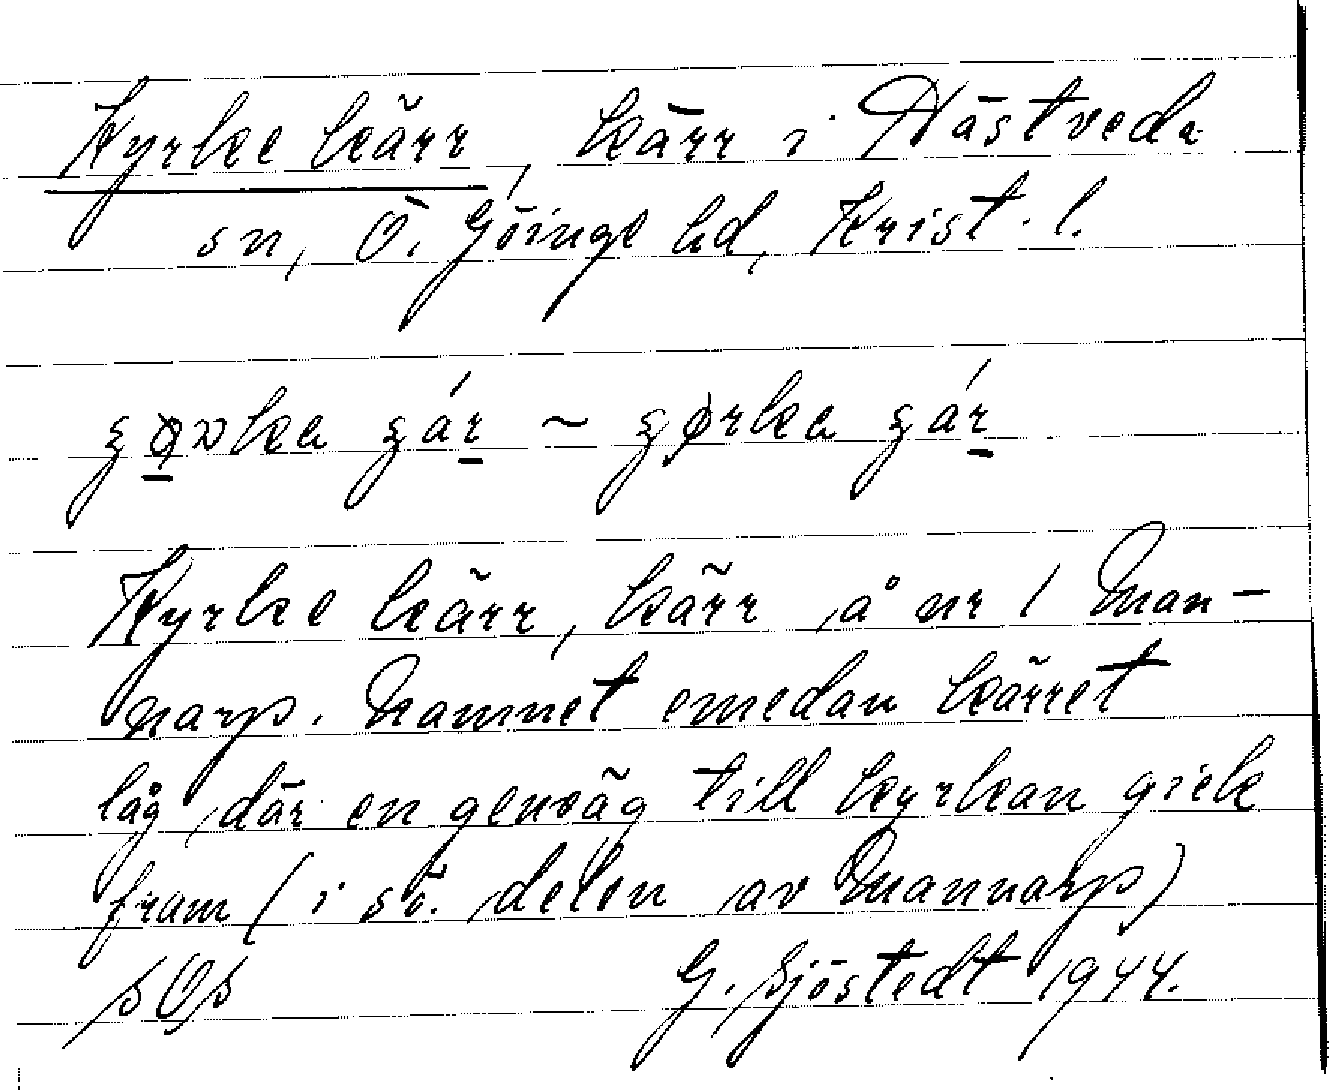 Kyrke kärr, kärr i Hästveda
sn, Ö. Göinge hd, Krist. l.
Kyrke kärr, kärr å nr 1 Man-
narp. Namnet emedan kärret
låg där en genväg till kyrkan gick
fram (i sö. delen av Mannarp)
sOs G. Sjöstedt 1944.